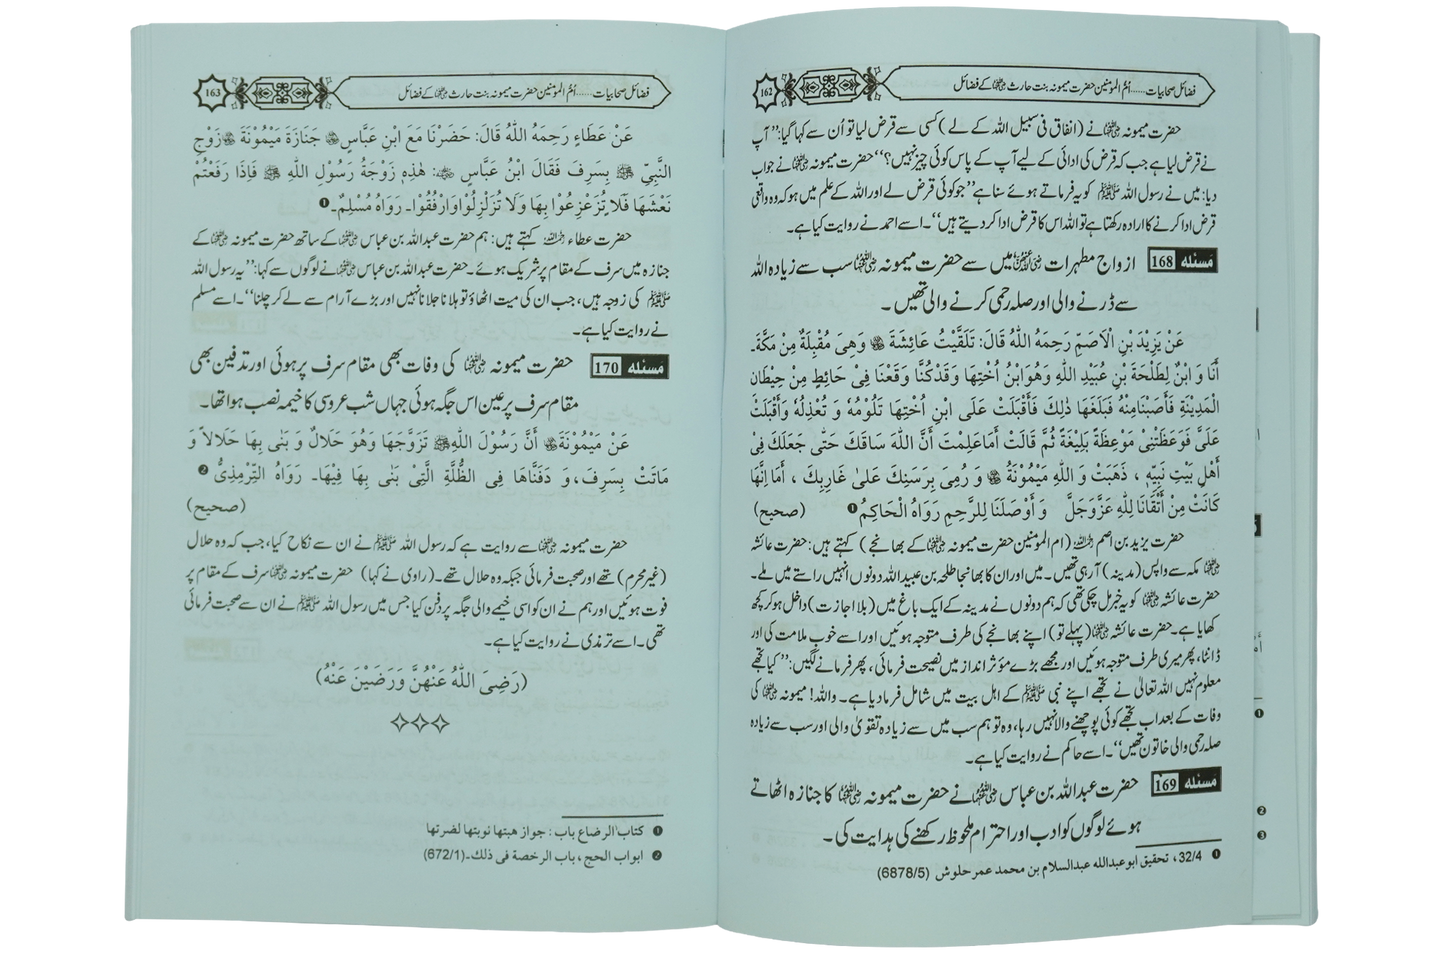 162
فضائل صحابیات......اُمّ المؤمنین حضرت میمونہ بنت حارث رضی اللہ عنہا کے فضائل
حضرت میمونہ رضی اللہ عنہا نے (انفاق فی سبیل اللہ کے لے) کسی سے قرض لیا تو اُن سے کہا گیا: ’’آپ
نے قرض لیا ہے جب کہ قرض کی ادائی کے لیے آپ کے پاس کوئی چیز نہیں؟‘‘ حضرت میمونہ رضی اللہ عنہا نے جواب
دیا: میں نے رسول اللہ ﷺ کو یہ فرماتے ہوئے سنا ہے ’’جو کوئی قرض لے اور اللہ کے علم میں ہو کہ وہ واقعی
قرض ادا کرنے کا ارادہ رکھتا ہے تو اللہ اس کا قرض ادا کر دیتے ہیں‘‘۔ اسے احمد نے روایت کیا ہے۔
مَسئلہ 168 ازواج مطہرات رضی اللہ عنہن میں سے حضرت میمونہ رضی اللہ عنہا سب سے زیادہ اللہ
سے ڈرنے والی اور صلہ رحمی کرنے والی تھیں۔
عَنْ یَزِیْدَ بْنِ الْاَصَمِّ رَحِمَہُ اللّٰہُ قَالَ: تَلَقَّیْتُ عَائِشَۃَ رضی اللہ عنہا وَھِیَ مُقْبِلَۃٌ مِنْ مَکَّۃَ۔
أَنَا وَ ابْنٌ لِطَلْحَۃَ بْنِ عُبَیْدِ اللّٰہِ وَھُوَ ابْنُ اُخْتِھَا وَقَدْ کُنَّا وَقَعْنَا فِیْ حَائِطٍ مِنْ حِیْطَانِ
الْمَدِیْنَۃِ فَأَصَبْنَا مِنْہُ فَبَلَغَھَا ذٰلِکَ فَأَقْبَلَتْ عَلَی ابْنِ اُخْتِھَا تَلُوْمُہٗ وَ تُعْذِلُہٗ وَأَقْبَلَتْ
عَلَیَّ فَوَعَظَتْنِیْ مَوْعِظَۃً بَلِیْغَۃً ثُمَّ قَالَتْ أَمَا عَلِمْتَ أَنَّ اللّٰہَ سَاقَکَ حَتّٰی جَعَلَکَ فِیْ
أَھْلِ بَیْتِ نَبِیِّہٖ ، ذَھَبَتْ وَ اللّٰہِ مَیْمُوْنَۃُ رضی اللہ عنہا وَ رُمِیَ بِرَسَنِکَ عَلٰی غَارِبِکَ ، أَمَا اِنَّھَا
کَانَتْ مِنْ أَتْقَانَا لِلّٰہِ عَزَّوَجَلَّ وَ أَوْصَلَنَا لِلرَّحِمِ رَوَاہُ الْحَاکِمُ ❶ (صحیح)
حضرت یزید بن اصم رحمہ اللہ (ام المؤمنین حضرت میمونہ رضی اللہ عنہا کے بھانجے) کہتے ہیں: حضرت عائشہ
رضی اللہ عنہا مکہ سے واپس (مدینہ) آ رہی تھیں۔ میں اور ان کا بھانجا طلحہ بن عبید اللہ دونوں انہیں راستے میں ملے۔
حضرت عائشہ رضی اللہ عنہا کو یہ خبر مل چکی تھی کہ ہم دونوں نے مدینہ کے ایک باغ میں (بلا اجازت) داخل ہو کر کچھ
کھایا ہے۔ حضرت عائشہ رضی اللہ عنہا (پہلے تو) اپنے بھانجے کی طرف متوجہ ہوئیں اور اسے خوب ملامت کی اور
ڈانٹا، پھر میری طرف متوجہ ہوئیں اور مجھے بڑے مؤثر انداز میں نصیحت فرمائی، پھر فرمانے لگیں: ’’کیا تجھے
معلوم نہیں اللہ تعالیٰ نے تجھے اپنے نبی ﷺ کے اہل بیت میں شامل فرما دیا ہے۔ واللہ! میمونہ رضی اللہ عنہا کی
وفات کے بعد اب تجھے کوئی پوچھنے والا نہیں رہا، وہ تو ہم سب میں سے زیادہ تقویٰ والی اور سب سے زیادہ
صلہ رحمی والی خاتون تھیں‘‘۔ اسے حاکم نے روایت کیا ہے۔
مَسئلہ 169 حضرت عبداللہ بن عباس رضی اللہ عنہما نے حضرت میمونہ رضی اللہ عنہا کا جنازہ اٹھاتے
ہوئے لوگوں کو ادب اور احترام ملحوظ رکھنے کی ہدایت کی۔
❶ 32/4 ، تحقیق ابو عبداللہ عبدالسلام بن محمد عمر حلوش (6878/5)
163
فضائل صحابیات......اُمّ المؤمنین حضرت میمونہ بنت حارث رضی اللہ عنہا کے فضائل
عَنْ عَطَاءٍ رَحِمَہُ اللّٰہُ قَالَ: حَضَرْنَا مَعَ ابْنِ عَبَّاسٍ رضی اللہ عنہما جَنَازَۃَ مَیْمُوْنَۃَ رضی اللہ عنہا زَوْجِ
النَّبِیِّ ﷺ بِسَرِفَ فَقَالَ ابْنُ عَبَّاسٍ رضی اللہ عنہما : ھٰذِہٖ زَوْجَۃُ رَسُوْلِ اللّٰہِ ﷺ فَاِذَا رَفَعْتُمْ
نَعْشَھَا فَلَا تُزَعْزِعُوْا بِھَا وَلَا تُزَلْزِلُوْا وَارْفُقُوْا۔ رَوَاہُ مُسْلِمٌ۔❶
حضرت عطاء رحمہ اللہ کہتے ہیں: ہم حضرت عبداللہ بن عباس رضی اللہ عنہما کے ساتھ حضرت میمونہ رضی اللہ عنہا کے
جنازہ میں سرف کے مقام پر شریک ہوئے۔ حضرت عبداللہ بن عباس رضی اللہ عنہما نے لوگوں سے کہا: ’’یہ رسول اللہ
ﷺ کی زوجہ ہیں، جب ان کی میت اٹھاؤ تو ہلانا جلانا نہیں اور بڑے آرام سے لے کر چلنا‘‘۔ اسے مسلم
نے روایت کیا ہے۔
مَسئلہ 170 حضرت میمونہ رضی اللہ عنہا کی وفات بھی مقام سرف پر ہوئی اور تدفین بھی
مقام سرف پر عین اس جگہ ہوئی جہاں شب عروسی کا خیمہ نصب ہوا تھا۔
عَنْ مَیْمُوْنَۃَ رضی اللہ عنہا أَنَّ رَسُوْلَ اللّٰہِ ﷺ تَزَوَّجَھَا وَھُوَ حَلَالٌ وَ بَنٰی بِھَا حَلَالًا وَ
مَاتَتْ بِسَرِفَ، وَ دَفَنَّاھَا فِی الظُّلَّۃِ الَّتِیْ بَنٰی بِھَا فِیْھَا۔ رَوَاہُ التِّرْمِذِیُّ ❷
(صحیح)
حضرت میمونہ رضی اللہ عنہا سے روایت ہے کہ رسول اللہ ﷺ نے ان سے نکاح کیا، جب کہ وہ حلال
(غیر محرم) تھے اور صحبت فرمائی جبکہ وہ حلال تھے۔ (راوی نے کہا) حضرت میمونہ رضی اللہ عنہا سرف کے مقام پر
فوت ہوئیں اور ہم نے ان کو اسی خیمے والی جگہ پر دفن کیا جس میں رسول اللہ ﷺ نے ان سے صحبت فرمائی
تھی۔ اسے ترمذی نے روایت کیا ہے۔
(رَضِیَ اللّٰہُ عَنْھُنَّ وَرَضَیْنَ عَنْہُ)
❶ کتاب الرضاع باب : جواز ھبتھا نوبتھا لضرتھا
❷ ابواب الحج ، باب الرخصۃ فی ذلک۔(672/1)